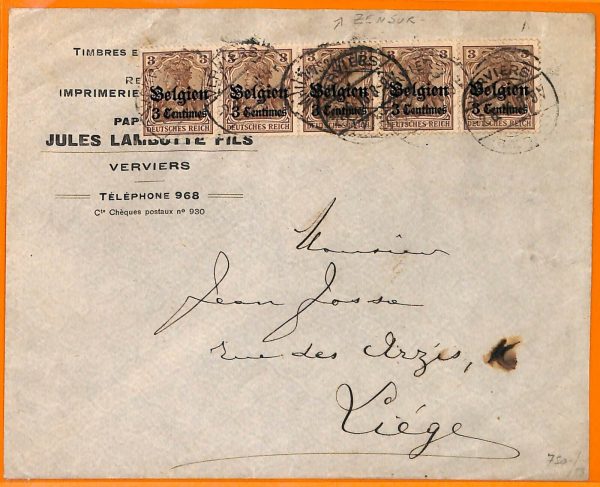 ↗ ZENSUR.
TIMBRES E
RE
IMPRIMERIE
PAP
JULES LAMBOTTE FILS
VERVIERS
TÉLÉPHONE 968
Cte Chèques postaux nº 930
3 3 3 3 3 3 3 3
Belgien Belgien Belgien Belgien Belgien
3 Centimes 3 Centimes 3 Centimes 3 Centimes 3 Centimes
DEUTSCHES REICH DEUTSCHES REICH DEUTSCHES REICH DEUTSCHES REICH DEUTSCHES REICH
VERVIERS VERVIERS VERVIERS
Monsieur
Jean Josse
rue des Arzis,
Liége
750.-/